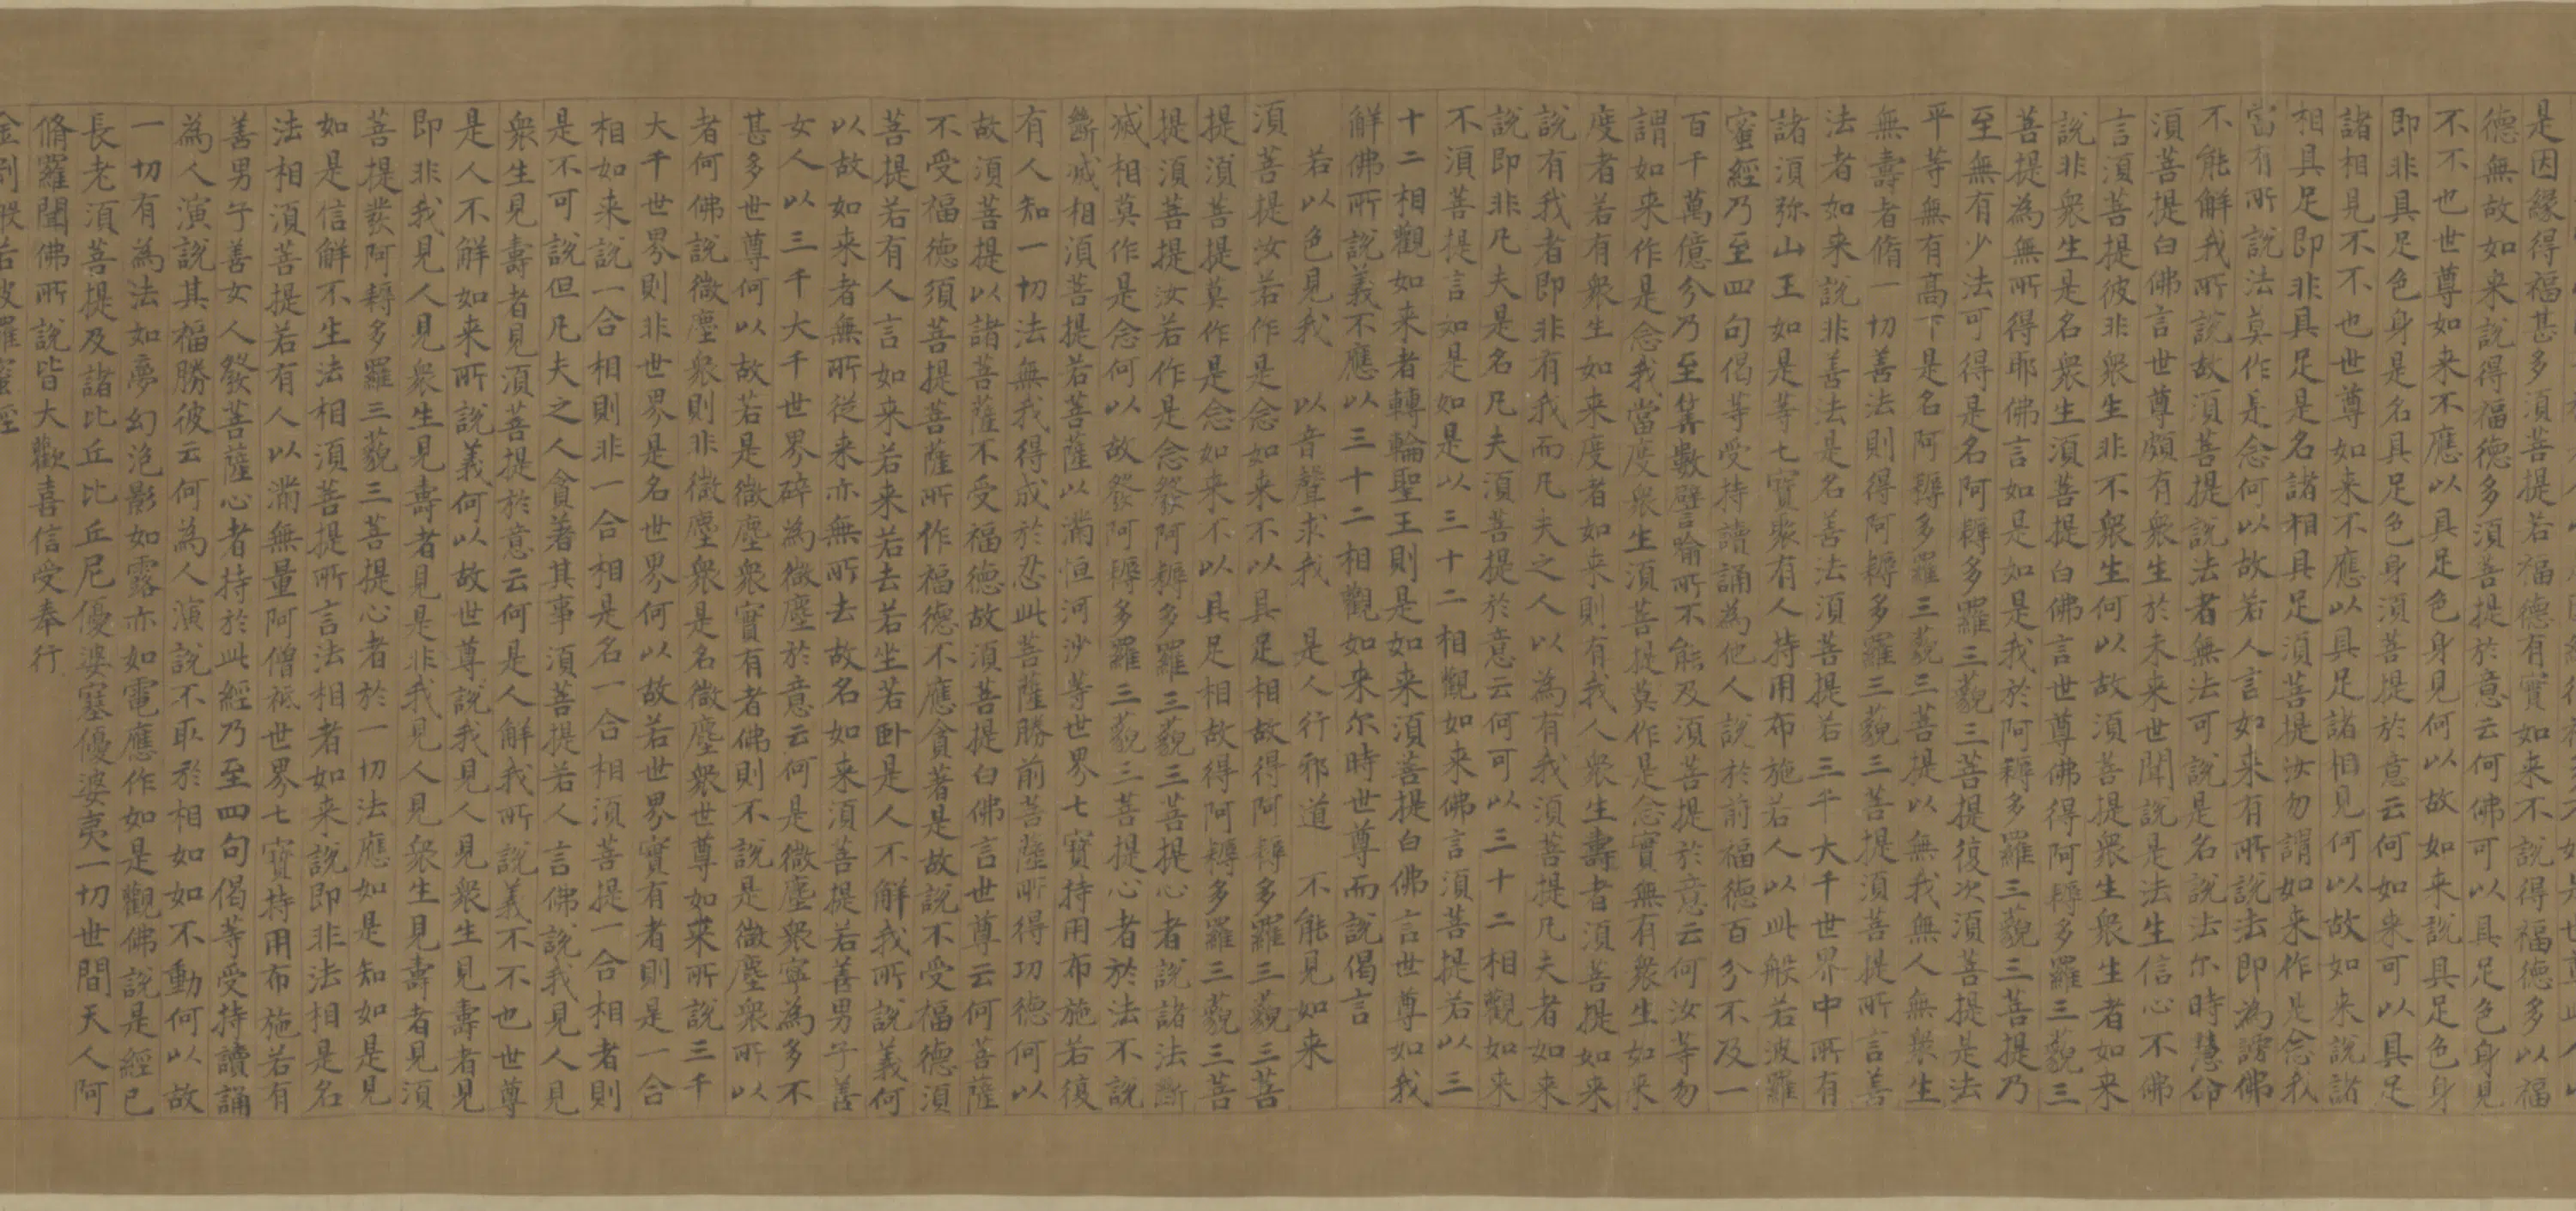 是因緣得福甚多須菩提若福德有實如来不說得福德多以福
德無故如来說得福德多須菩提於意云何佛可以具足色身見
不不也世尊如来不應以具足色身見何以故如来說具足色身
即非具足色身是名具足色身須菩提於意云何如来可以具足
諸相見不不也世尊如来不應以具足諸相見何以故如来說諸
相具足即非具足是名諸相具足須菩提汝勿謂如来作是念我
當有所說法莫作是念何以故若人言如来有所說法即為謗佛
不能解我所說故須菩提說法者無法可說是名說法尔時慧命
須菩提白佛言世尊頗有衆生於未来世聞說是法生信心不佛
言須菩提彼非衆生非不衆生何以故須菩提衆生衆生者如来
說非衆生是名衆生須菩提白佛言世尊佛得阿耨多羅三藐三
菩提為無所得耶佛言如是如是我於阿耨多羅三藐三菩提乃
至無有少法可得是名阿耨多羅三藐三菩提復次須菩提是法
平等無有高下是名阿耨多羅三藐三菩提以無我無人無衆生
無壽者脩一切善法則得阿耨多羅三藐三菩提須菩提所言善
法者如来說非善法是名善法須菩提若三千大千世界中所有
諸須弥山王如是等七寶聚有人持用布施若人以此般若波羅
蜜經乃至四句偈等受持讀誦為他人說於前福德百分不及一
百千萬億分乃至筭數譬喻所不能及須菩提於意云何汝等勿
謂如来作是念我當度衆生須菩提莫作是念實無有衆生如来
度者若有衆生如来度者如来則有我人衆生壽者須菩提如来
說有我者即非有我而凡夫之人以為有我須菩提凡夫者如来
說即非凡夫是名凡夫須菩提於意云何可以三十二相觀如来
不須菩提言如是如是以三十二相觀如来佛言須菩提若以三
十二相觀如来者轉輪聖王則是如来須菩提白佛言世尊如我
解佛所說義不應以三十二相觀如来尔時世尊而說偈言
若以色見我 以音聲求我 是人行邪道 不能見如来
須菩提汝若作是念如来不以具足相故得阿耨多羅三藐三菩
提須菩提莫作是念如来不以具足相故得阿耨多羅三藐三菩
提須菩提汝若作是念發阿耨多羅三藐三菩提心者說諸法斷
滅相莫作是念何以故發阿耨多羅三藐三菩提心者於法不說
斷滅相須菩提若菩薩以滿恒河沙等世界七寶持用布施若復
有人知一切法無我得成於忍此菩薩勝前菩薩所得功德何以
故須菩提以諸菩薩不受福德故須菩提白佛言世尊云何菩薩
不受福德須菩提菩薩所作福德不應貪著是故說不受福德須
菩提若有人言如来若来若去若坐若卧是人不解我所說義何
以故如来者無所從来亦無所去故名如来須菩提若善男子善
女人以三千大千世界碎為微塵於意云何是微塵衆寧為多不
甚多世尊何以故若是微塵衆實有者佛則不說是微塵衆所以
者何佛說微塵衆則非微塵衆是名微塵衆世尊如来所說三千
大千世界則非世界是名世界何以故若世界實有者則是一合
相如来說一合相則非一合相是名一合相須菩提一合相者則
是不可說但凡夫之人貪著其事須菩提若人言佛說我見人見
衆生見壽者見須菩提於意云何是人解我所說義不不也世尊
是人不解如来所說義何以故世尊說我見人見衆生見壽者見
即非我見人見衆生見壽者見是非我見人見衆生見壽者見須
菩提發阿耨多羅三藐三菩提心者於一切法應如是知如是見
如是信解不生法相須菩提所言法相者如来說即非法相是名
法相須菩提若有人以滿無量阿僧祇世界七寶持用布施若有
善男子善女人發菩薩心者持於此經乃至四句偈等受持讀誦
為人演說其福勝彼云何為人演說不取於相如如不動何以故
一切有為法如夢幻泡影如露亦如電應作如是觀佛說是經已
長老須菩提及諸比丘比丘尼優婆塞優婆夷一切世間天人阿
脩羅聞佛所說皆大歡喜信受奉行
金剛般若波羅蜜經